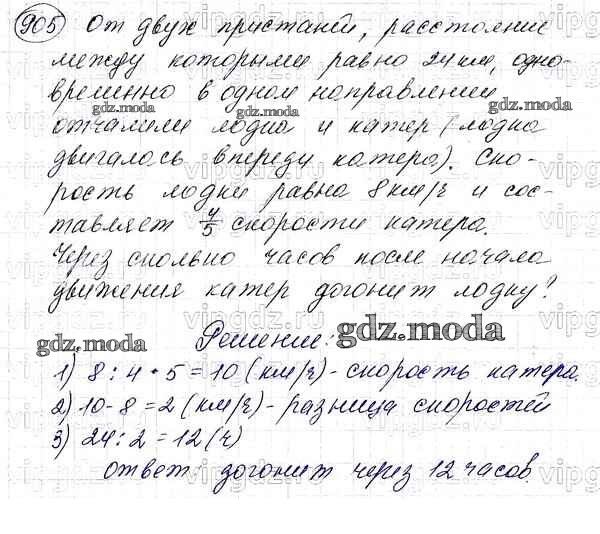 905 От двух пристаней, расстояние
между которыми равно 24 км, одно-
временно в одном направлении
отчалили лодка и катер (лодка
двигалась впереди катера). Ско-
рость лодки равна 8 км/ч и сос-
тавляет 4/5 скорости катера.
Через сколько часов после начала
движения катер догонит лодку?
Решение:
1) 8 : 4 • 5 = 10 (км/ч) - скорость катера.
2) 10 - 8 = 2 (км/ч) - разница скоростей
3) 24 : 2 = 12 (ч)
ответ: догонит через 12 часов.
gdz.moda
gdz.moda
gdz.moda
gdz.moda
gdz.moda